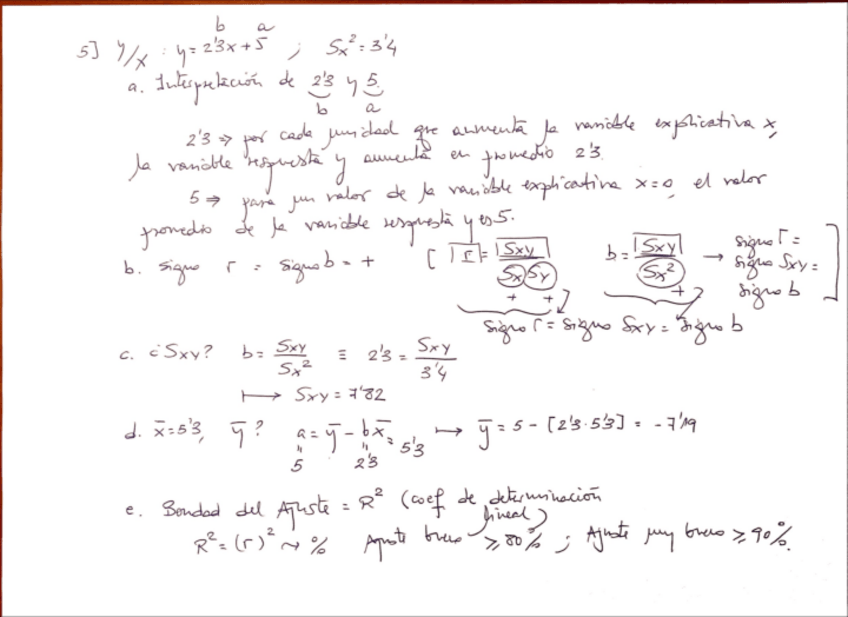 b a
5] y/x : y = 2'3x + 5 ; Sx² = 3'4
a. Interpretación de 2'3 y 5.
b a
2'3 ⇒ por cada unidad que aumenta la variable explicativa x,
la variable respuesta y aumenta en promedio 2'3.
5 ⇒ para un valor de la variable explicativa x=0, el valor
promedio de la variable respuesta y es 5.
b. signo r = signo b = + [ r = Sxy / Sx Sy b = Sxy / Sx² → signo r = signo Sxy = signo b ]
+ + +
signo r = signo Sxy = signo b
c. ¿Sxy? b = Sxy / Sx² ≡ 2'3 = Sxy / 3'4
↦ Sxy = 7'82
d. x̄ = 5'3, ȳ? a = ȳ - b x̄ = 5'3 ↦ ȳ = 5 - [2'3 · 5'3] = -7'19
" "
5 2'3
e. Bondad del Ajuste = R² (coef de determinación
lineal)
R² = (r)² ~ % Ajuste bueno ≥ 80% ; Ajuste muy bueno ≥ 90%.